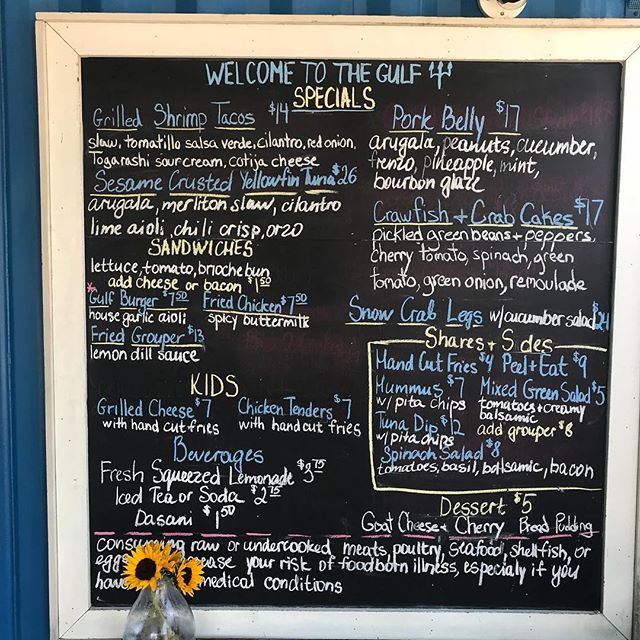 WELCOME TO THE GULF
SPECIALS
Grilled Shrimp Tacos $14
slaw, tomatillo salsa verde, cilantro, red onion,
Togarashi sour cream, cotija cheese
Sesame Crusted Yellowfin Tuna $26
arugala, merliton slaw, cilantro
lime aioli, chili crisp, orzo
SANDWICHES
lettuce, tomato, brioche bun
add cheese or bacon $1.50
*Gulf Burger $7.50
house garlic aioli
Fried Chicken $7.50
spicy buttermilk
Fried Grouper $13
lemon dill sauce
KIDS
Grilled Cheese $7
with hand cut fries
Chicken Tenders $7
with hand cut fries
Beverages
Fresh Squeezed Lemonade $3.75
Iced Tea or Soda $2.75
Dasani $1.50
Pork Belly $17
arugala, peanuts, cucumber,
frenzo, pineapple, mint,
bourbon glaze
Crawfish + Crab Cakes $17
pickled green beans + peppers,
cherry tomato, spinach, green
tomato, green onion, remoulade
Snow Crab Legs w/cucumber salad $24
Shares + Sides
Hand Cut Fries $4 Peel + Eat $9
Hummus $7
w/ pita chips
Mixed Green Salad $5
tomatoes + creamy
balsamic
Tuna Dip $12
w/ pita chips
add grouper $8
Spinach Salad $8
tomatoes, basil, balsamic, bacon
Dessert $5
Goat Cheese + Cherry Bread Pudding
consuming raw or undercooked meats, poultry, seafood, shellfish, or
eggs ease your risk of foodborn illness, especialy if you
have medical conditions